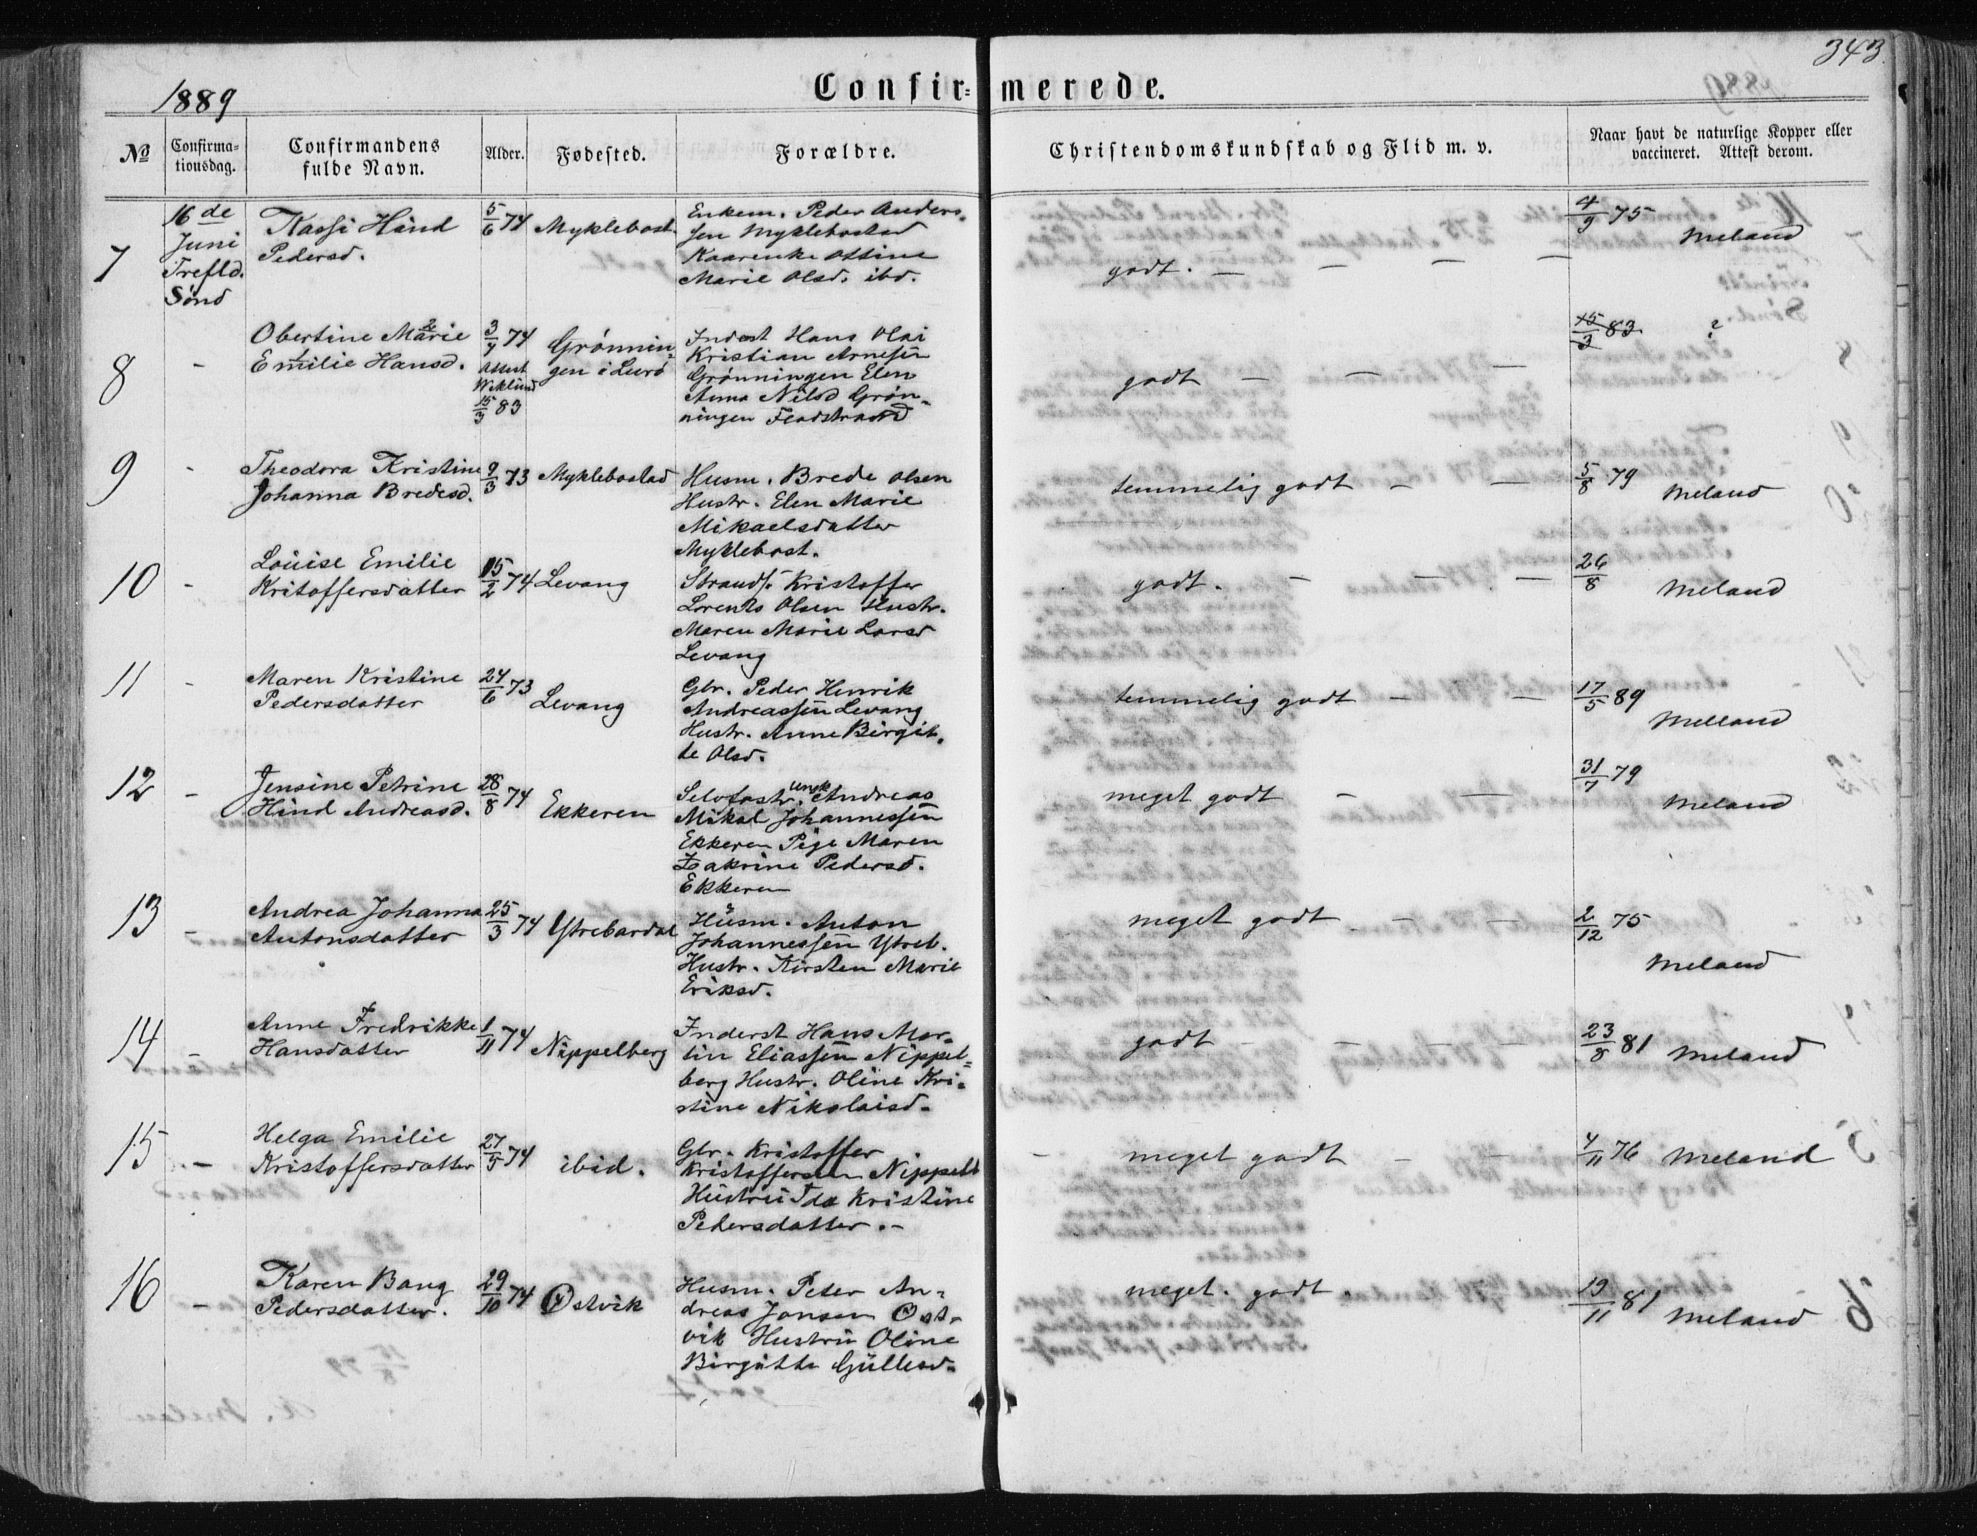 343.
1889
Confir= merede.
№
Confirma-
tionsdag.
Confirmandens
fulde Navn.
Alder.
Fødested.
Forældre.
Christendomskundskab og Flid m. v.
Naar havt de naturlige Kopper eller
vaccineret. Attest derom.
7
16de
Juni
Trefld.
Sønd
Kassi Hind
Pedersd.
5/6 74
Myklebost
Enkem. Peder Anders-
sen Myklebostad
Kaarenke Attine
Marie Olsd. ibd.
godt. — — — — —
4/9 75
Meland
8
-
Obertine Marie 2
Emilie 1 Hansd.
3/4 74
Attest
Weklund
15/3 83
Grønnin-
gen i Lurø
Inderst Hans Olai
Kristian Arnesen
Grønningen Elen
Anna Nilsd Grøn-
ningen
godt — — —
15/3 83. ?
9
-
Theodora Kristine
Johanna Bredesd.
9/3 73
Myklebostad
Husm. Brede Olsen
Hustr. Elen Marie
Mikaelsdatter
Myklebost.
temmelig godt — —
5/8 79
Meland
10
-
Louise Emilie
Kritoffersdatter
15/2 74
Levang
Strands. Kristoffer
Lorents Olsen Hustr.
Maren Marie Larsd
Levang
godt. — — —
26/8
Meland
11
-
Maren Kristine
Pedersdatter
24/6 73
Levang
Gbr. Peder Henrik
Andreassen Levang
Hustr. Anne Birgit-
te Olsd.
temmelig godt — —
17/5 89
Meland
12
-
Jensine Petrine
Hind Andreasd.
28/8 74
Ekkeren
Selvfostr. ungk. Andreas
Mikal Johannessen
Ekkeren Pige Maren
Zakrine Pedersd.
Ekkeren
meget godt — —
31/7 79
Meland
13
-
Andrea Johanna
Antonsdatter
25/3 74
Ytrebardal
Husm. Anton
Johannessen Ytreb.
Hustr. Kirsten Marie
Eriksd.
meget godt — —
2/12 75
Meland
14
-
Anne Fredrikke
Hansdatter
1/11 74
Nippelberg
Inderst Hans Mar-
tin Eliassen Nippel-
berg Hustr. Oline Kri-
stine Nikolaisd.
godt — — — —
23/8 81
Meland
15
-
Helga Emilie
Kristoffersdatter
27/5 74
ibid.
Gbr. Kristoffer
Kristoffersen Nippelb
Hustru Ida Kristine
Pedersdatter.
meget godt — —
4/11 76
Meland
16
-
Karen Bang
Pedersdatter.
29/10 74
Østvik
Husm. Peter An-
dreas Jonsen Øst-
vik Hustru Oline
Birgitte Gullesd.
meget. godt.
19/11 81
Meland